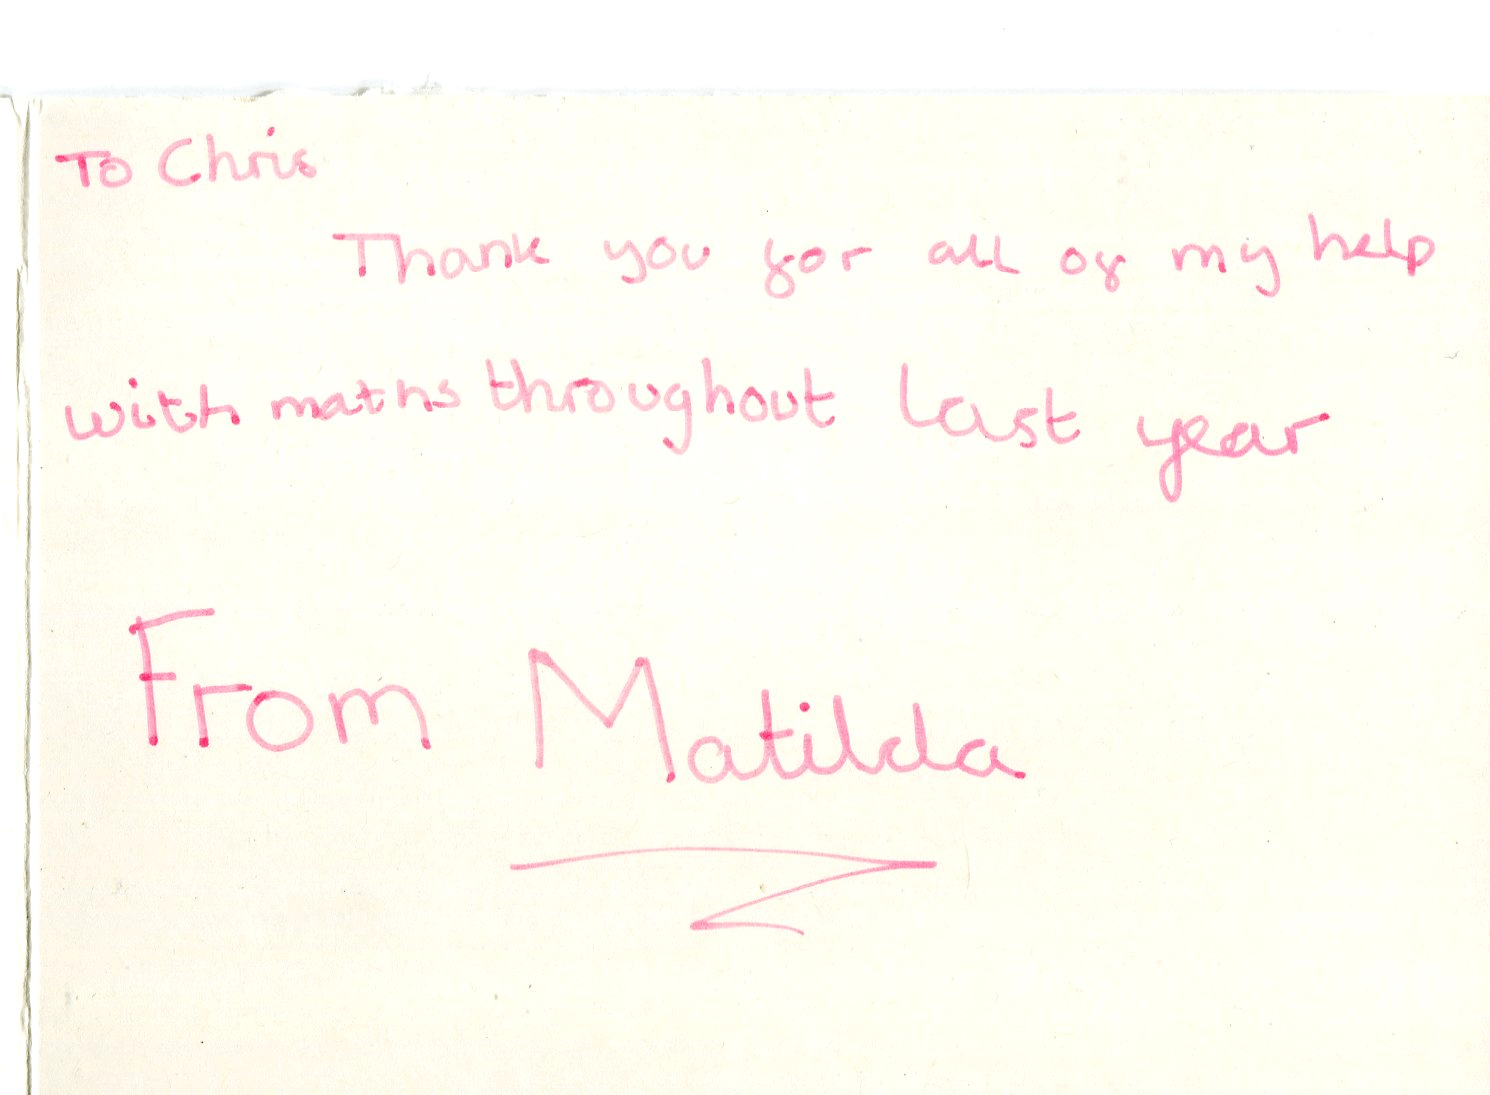 To Chris
Thank you for all of my help
with maths throughout last year
From Matilda